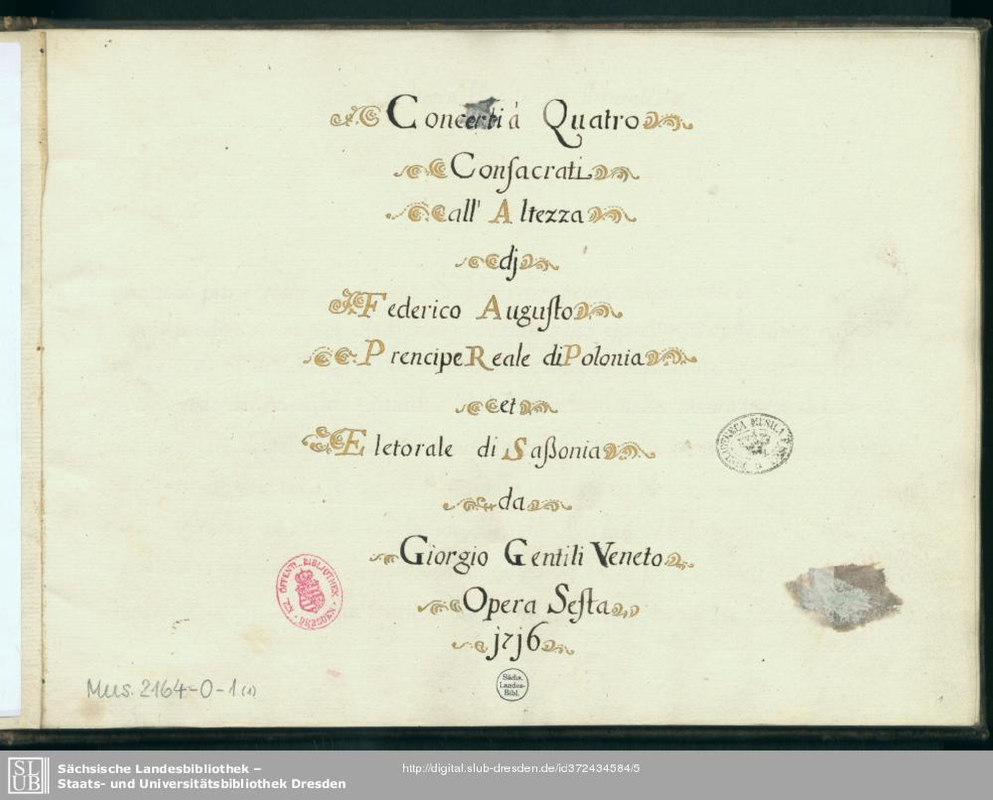 Concerti à Quatro
Conſacrati
all' Altezza
dj
Federico Auguſto
Prencipe Reale di Polonia
et
Eletorale di Saßonia
da
Giorgio Gentili Veneto
Opera Seſta
j7j6
KL. ÖFFENTL. BIBLIOTHEK
DRESDEN
Sächs.
Landes-
Bibl.
Mus. 2164-O-1 (1)
SLUB
Sächsische Landesbibliothek –
Staats- und Universitätsbibliothek Dresden
http://digital.slub-dresden.de/id372434584/5